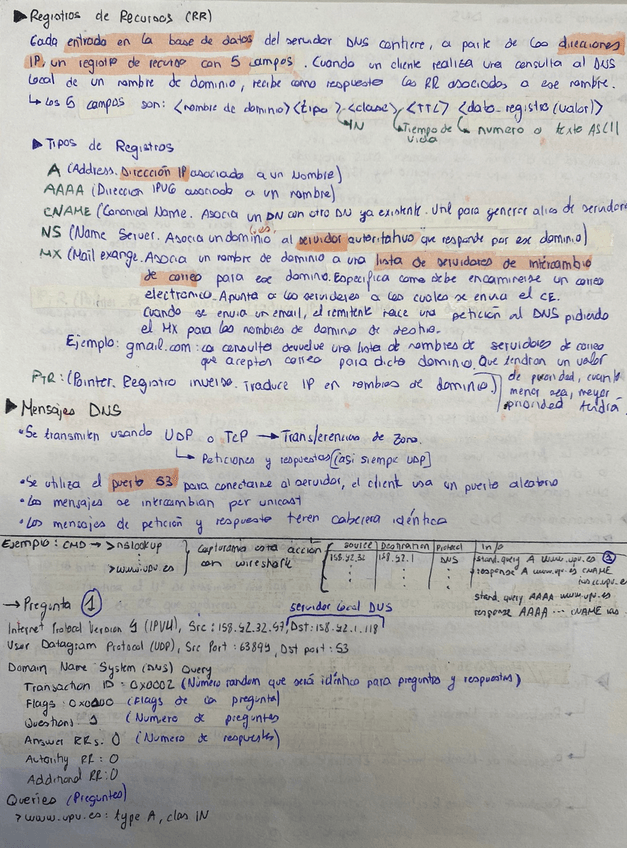 ▶ Registros de Recursos (RR)
Cada entrada en la base de datos del servidor DNS contiene, a parte de las direcciones
IP, un registro de recurso con 5 campos. Cuando un cliente realiza una consulta al DNS
local de un nombre de dominio, recibe como respuesta los RR asociados a ese nombre.
↳ Los 5 campos son: <nombre de dominio> <tipo> <clase> <TTL> <dato_registro (valor)>
↳ IN ↳ Tiempo de vida ↳ numero o texto ASCII
▶ Tipos de Registros
A (Address. Dirección IP asociada a un Nombre)
AAAA (Direccion IPV6 asociada a un nombre)
CNAME (Canonical Name. Asocia un DN con otro DN ya existente. Util para generar alias de servidores
NS (Name Server. Asocia un dominio al servidor autoritativo que responde por ese dominio)
MX (Mail exange. Asocia un nombre de dominio a una lista de servidores de intercambio
de correo para ese dominio. Especifica como debe encaminarse un correo
electronico. Apunta a los servidores a los cuales se envia el CE.
Cuando se envia un email, el remitente hace una petición al DNS pidiendo
el MX para los nombres de dominio de destino.
Ejemplo: gmail.com: la consulta devuelve una lista de nombres de servidores de correo
que aceptan correo para dicho dominio. Que tendran un valor
de prioridad, cuanto
menor sea, mayor
prioridad tendrá.
PTR: (Pointer. Registro inverso. Traduce IP en nombres de dominio)
▶ Mensajes DNS
• Se transmiten usando UDP o TCP → Transferencias de Zona.
↳ Peticiones y respuestas (casi siempre UDP)
• Se utiliza el puerto 53 para conectarse al servidor, el client usa un puerto aleatorio
• Los mensajes se intercambian per unicast
• Los mensajes de petición y respuesta tenen cabecera idéntica
Ejemplo: CMD → > nslookup
> www.upv.es
Capturamos esta acción
con wireshark
Source | Destination | Protocol | Info
158.42.32 158.42.1 DNS stand. query A www.upv.es ①
response A www.upv.es CNAME
stand. query AAAA www.upv.es
response AAAA ... CNAME ias
→ Pregunta ①
servidor local DNS
Internet Protocol Version 4 (IPV4), Src: 158.42.32.97, Dst: 158.42.1.118
User Datagram Protocol (UDP), Src Port: 63899, Dst port: 53
Domain Name System (DNS) Query
Transaction ID: 0x0002 (Número random que será idéntico para preguntas y respuestas)
Flags: 0x0100 (Flags de la pregunta)
Questions 1 (Numero de preguntas
Answer RRs: 0 (Numero de respuestas)
Autority RR: 0
Additional RR: 0
Queries (Preguntes)
> www.upv.es: type A, clas IN